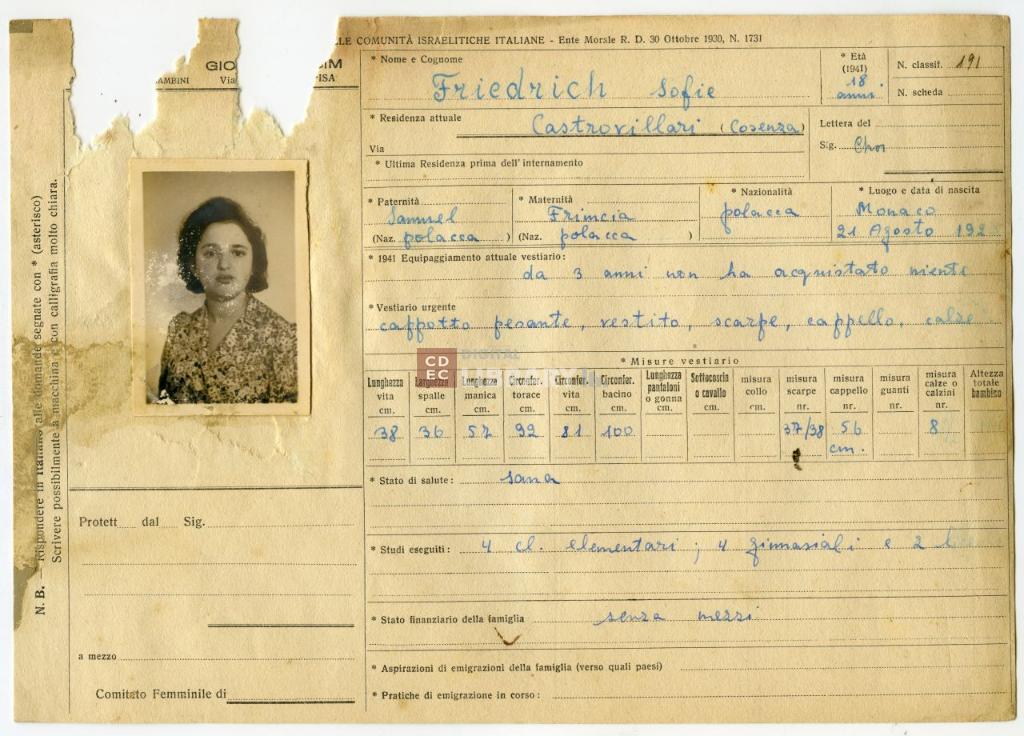 LE COMUNITÀ ISRAELITICHE ITALIANE - Ente Morale R. D. 30 Ottobre 1930, N. 1731
GIO IM
AMBINI Via PISA
* Nome e Cognome
Friedrich Sofie
* Età
(1941)
18
anni
N. classif. 191
N. scheda
* Residenza attuale
Castrovillari (Cosenza)
Via
* Ultima Residenza prima dell'internamento
Lettera del
Sig.
* Paternità
Samuel
(Naz. polacca )
* Maternità
Frimcia
(Naz. polacca )
* Nazionalità
polacca
* Luogo e data di nascita
Monaco
21 Agosto 192
* 1941 Equipaggiamento attuale vestiario:
da 3 anni non ha acquistato niente
* Vestiario urgente
cappotto pesante, vestito, scarpe, cappello, calze
* Misure vestiario
Lunghezza vita cm. 38
Larghezza spalle cm. 36
Lunghezza manica cm. 57
Circonfer. torace cm. 92
Circonfer. vita cm. 81
Circonfer. bacino cm. 100
Lunghezza pantaloni o gonna cm.
Sottocoscia o cavallo cm.
misura collo cm.
misura scarpe nr. 37/38
misura cappello nr. 56 cm.
misura guanti nr.
misura calze o calzini nr. 8
Altezza totale bambino
* Stato di salute: sana
* Studi eseguiti: 4 cl. elementari; 4 ginnasiali e 2 l
* Stato finanziario della famiglia senza mezzi
* Aspirazioni di emigrazioni della famiglia (verso quali paesi)
* Pratiche di emigrazione in corso:
Protett dal Sig.
a mezzo
Comitato Femminile di
N. B. - Rispondere in italiano alle domande segnate con * (asterisco)
Scrivere possibilmente a macchina o con calligrafia molto chiara.
CDEC DIGITAL LIBRARY.it